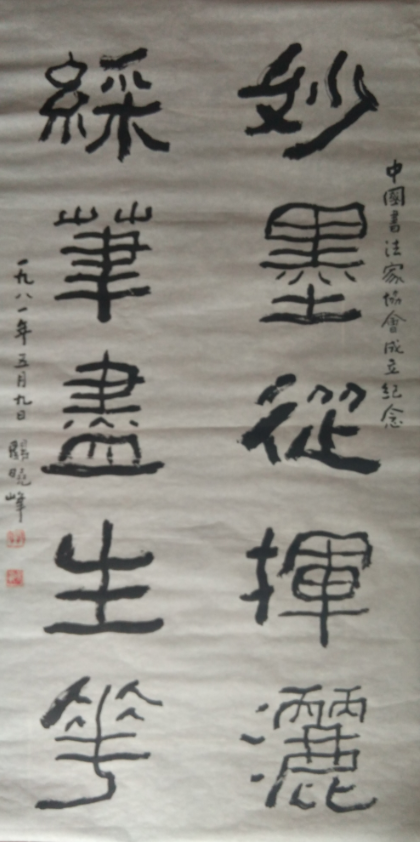 中國書法家協會成立紀念
妙墨從揮灑
綵筆盡生花
一九八一年五月九日 關曉峰